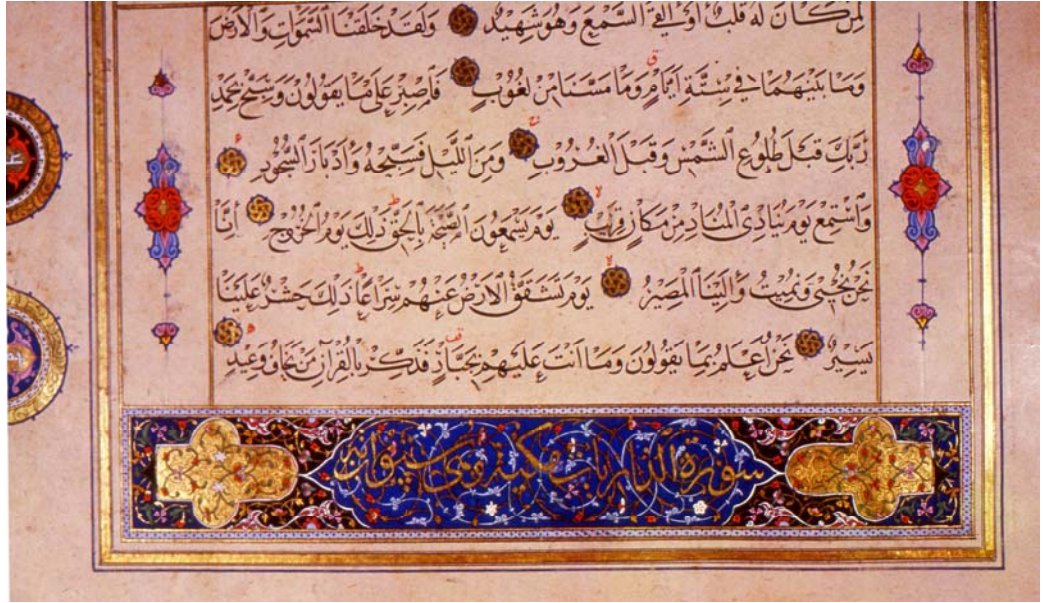 لِمَنْ كَانَ لَهُ قَلْبٌ أَوْ أَلْقَى السَّمْعَ وَهُوَ شَهِيدٌ وَلَقَدْ خَلَقْنَا السَّمٰوَاتِ وَالْاَرْضَ
وَمَا بَيْنَهُمَا فِي سِتَّةِ اَيَّامٍ وَمَا مَسَّنَا مِنْ لُغُوبٍ فَاصْبِرْ عَلَى مَا يَقُولُونَ وَسَبِّحْ بِحَمْدِ
رَبِّكَ قَبْلَ طُلُوعِ الشَّمْسِ وَقَبْلَ الْغُرُوبِ وَمِنَ اللَّيْلِ فَسَبِّحْهُ وَاَدْبَارَ السُّجُودِ
وَاسْتَمِعْ يَوْمَ يُنَادِي الْمُنَادِ مِنْ مَكَانٍ قَرِيبٍ يَوْمَ يَسْمَعُونَ الصَّيْحَةَ بِالْحَقِّ ذٰلِكَ يَوْمُ الْخُرُوجِ اِنَّا
نَحْنُ نُحْيِي وَنُمِيتُ وَاِلَيْنَا الْمَصِيرُ يَوْمَ تَشَقَّقُ الْاَرْضُ عَنْهُمْ سِرَاعًا ذٰلِكَ حَشْرٌ عَلَيْنَا
يَسِيرٌ نَحْنُ اَعْلَمُ بِمَا يَقُولُونَ وَمَا اَنْتَ عَلَيْهِمْ بِجَبَّارٍ فَذَكِّرْ بِالْقُرْاٰنِ مَنْ يَخَافُ وَعِيدِ
سورة الذاريات مكية وهي ستون اية